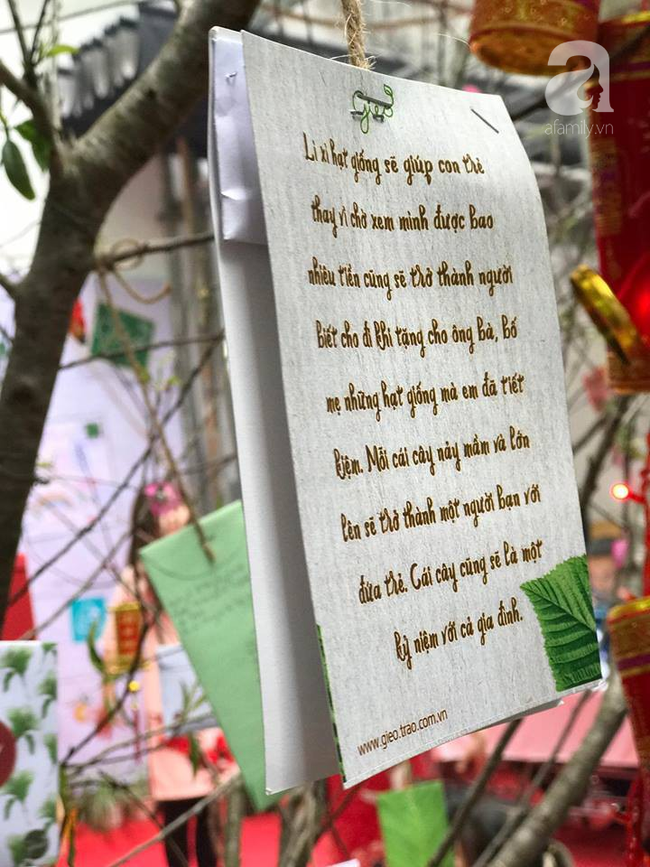 a
afamily.vn
Gieo
Lì xì hạt giống sẽ giúp con trẻ
thay vì chờ xem mình được bao
nhiêu tiền cũng sẽ trở thành người
biết cho đi khi tặng cho ông bà, bố
mẹ những hạt giống mà em đã tiết
kiệm. Mỗi cái cây nảy mầm và lớn
lên sẽ trở thành một người bạn với
đứa trẻ. Cái cây cũng sẽ là một
kỷ niệm với cả gia đình.
www.gieo.trao.com.vn